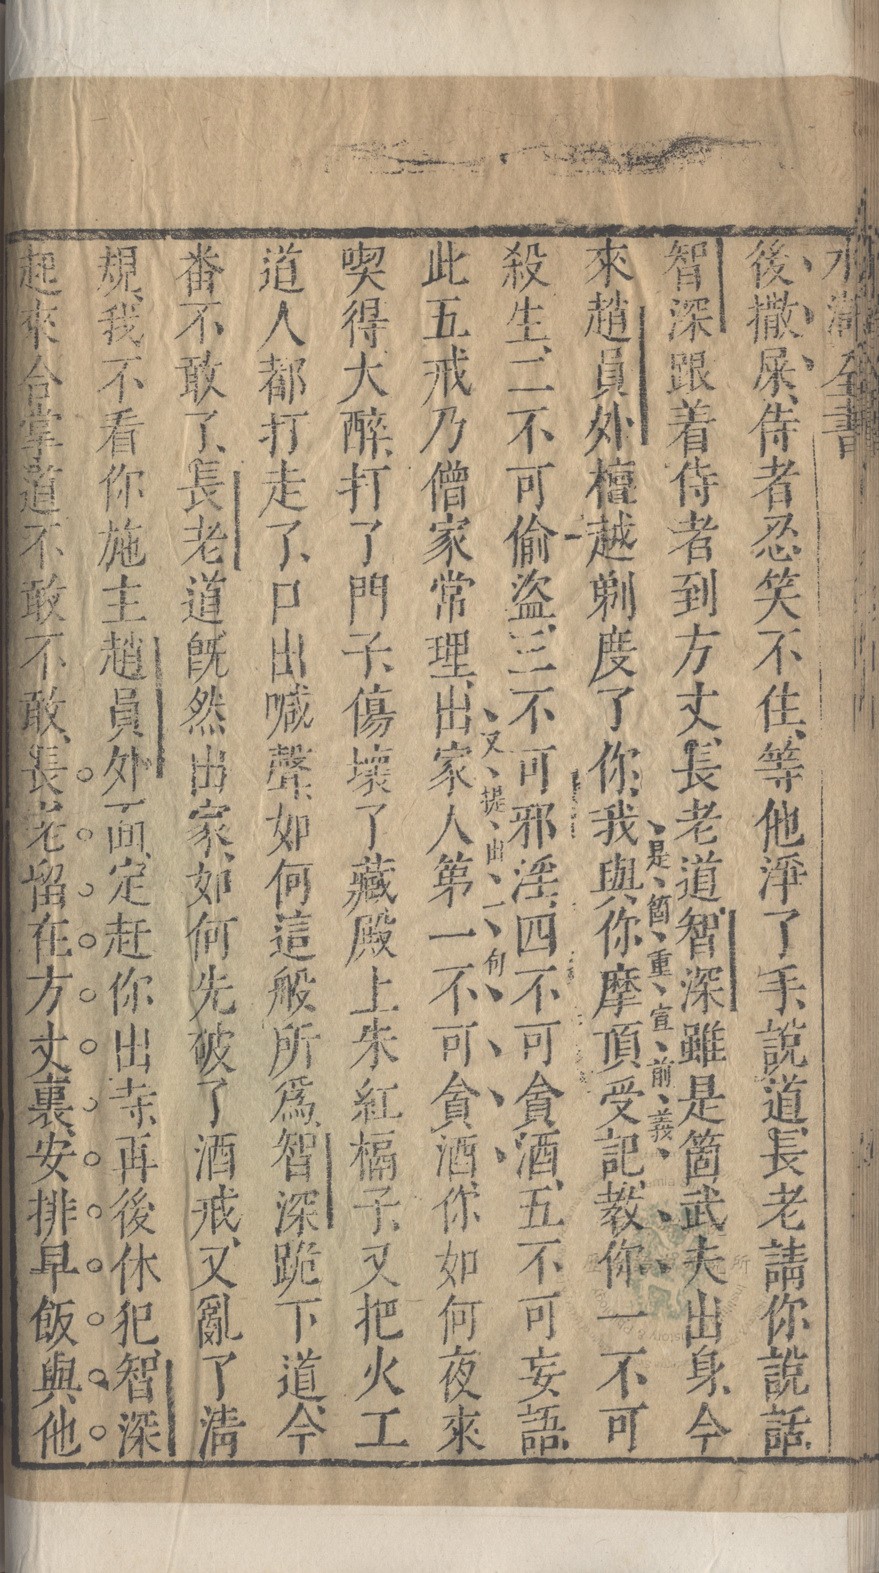 水滸全書
後撒屎、侍者忍笑不住、等他淨了手、說道、長老請你說話、
智深跟着侍者到方丈、長老道、智深雖是箇武夫出身、今
是箇重宣前義
來趙員外檀越剃度了你、我與你摩頂受記、教你一不可
殺生、二不可偷盜、三不可邪淫、四不可貪酒、五不可妄語、
又提出一句
此五戒乃僧家常理、出家人第一不可貪酒、你如何夜來
喫得大醉、打了門子、傷壞了藏殿上朱紅槅子、又把火工
道人都打走了、口出喊聲、如何這般所爲、智深跪下道、今
番不敢了、長老道旣然出家、如何先破了酒戒、又亂了清
規、我不看你施主趙員外面、定赶你出寺、再後休犯、智深
起來合掌道不敢不敢、長老留在方丈裏、安排早飯與他